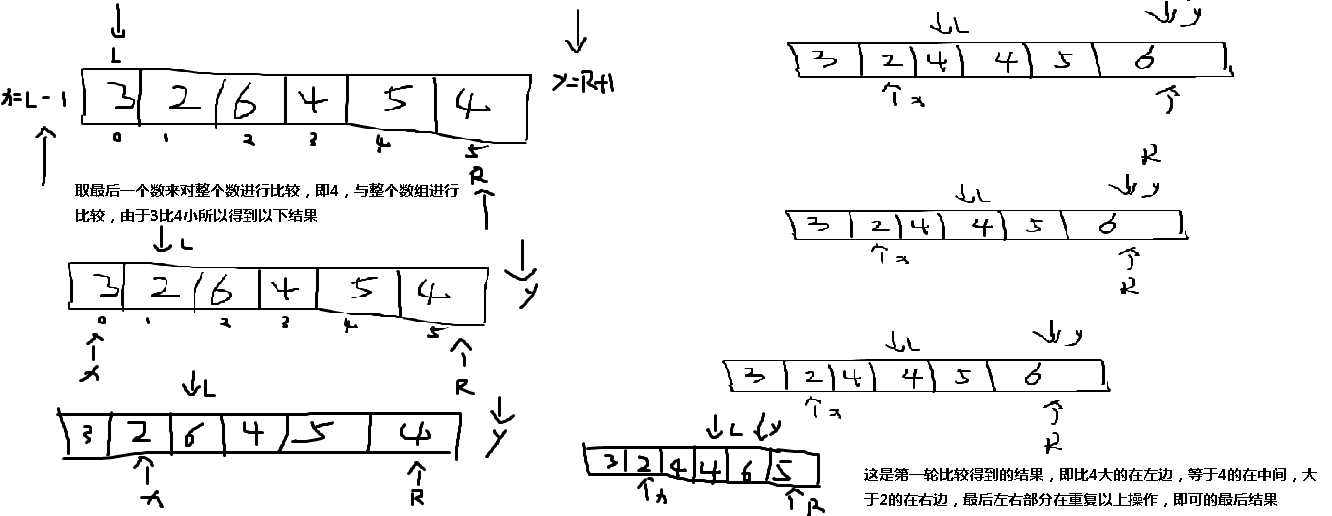 L
x=L-1 3 2 6 4 5 4 y=R+1
0 1 2 3 4 5
R
取最后一个数来对整个数进行比较，即4，与整个数组进行
比较，由于3比4小所以得到以下结果
L
3 2 6 4 5 4 y
0 1 2 3 4 5
x R
L
3 2 6 4 5 4 y
x R
L y
3 2 4 4 5 6
x
R
L y
3 2 4 4 5 6
x
R
L y
3 2 4 4 5 6
x
R
L y
3 2 4 4 6 5
x R
这是第一轮比较得到的结果，即比4大的在左边，等于4的在中间，大
于2的在右边，最后左右部分在重复以上操作，即可的最后结果